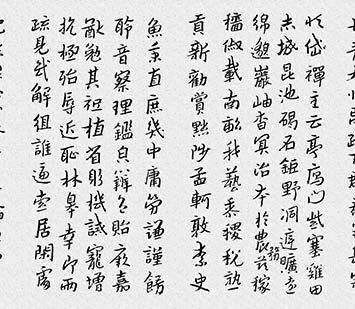 恒岱禪主云亭雁門紫塞雞田
赤城昆池碣石鉅野洞庭曠遠
綿邈巖岫杳冥治本於農務茲稼
穡俶載南畝我藝黍稷稅熟
貢新勸賞黜陟孟軻敦素史
魚秉直庶幾中庸勞謙謹勅
聆音察理鑑皃辯色貽厥嘉
猷勉其祗植省躬譏誡寵增
抗極殆辱近恥林皋幸即兩
疏見機解組誰逼索居閑處